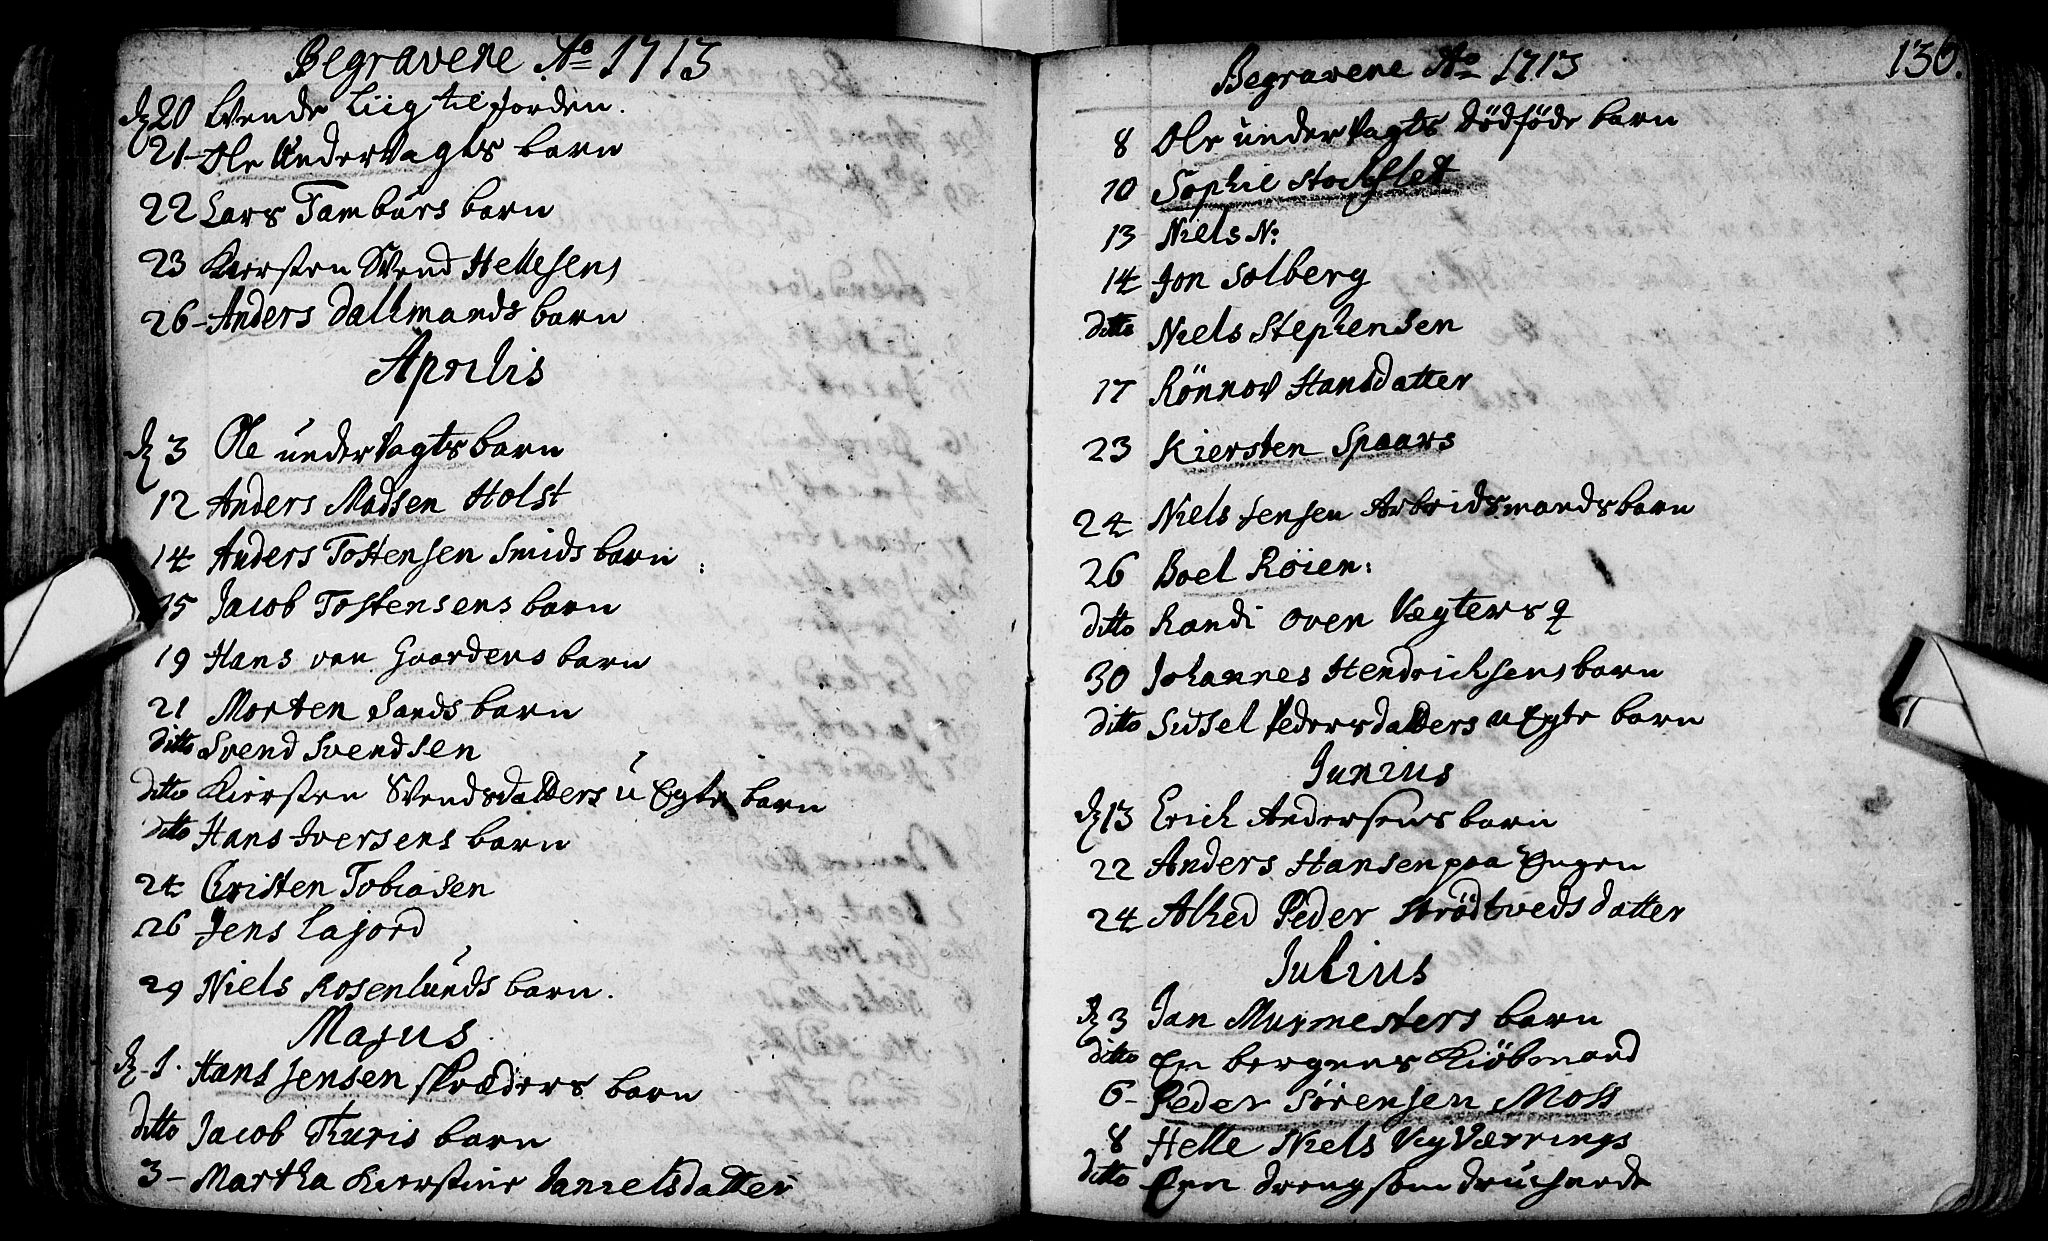 Begravene Ao 1713
d 20 Wende Liig til jorden.
21 - Ole Undervagts barn
22 Lars Tambürs barn
23 Kiersten Svend Hellesens
26 - Anders Dallmands barn
Aprilis
d 3 Ole undervagts barn
12 Anders Madsen Holst
14 Anders Tostensen Smids barn
15 Jacob Tostensens barn
19 Hans von Gaardens barn
21 Morten Sands barn
ditto Svend Svendsen
ditto Kiersten Svendsdatters u Egte barn
ditto Hans Iversens barn
24 Cristen Tobiasen
26 Jens Lajord
29 Niels Rosenlunds barn.
Majus
d. 1. Hans Jensen skræders barn
ditto Jacob Thuris barn
3 - Martha Kierstine Danielsdatter
Begravene Ao 1713 130.
8 Ole undervagts dödföde barn
10 Sophie Stockflet
13 Niels N:
14 Jon Solberg
ditto Niels Stephensen
17 Rönnov Hansdatter
23 Kiersten Spaars
24 Niels Jensen Arbeidsmands barn
26 Boel Röien:
ditto Randi Oven Vægters q
30 Johannes Hendrichsens barn
ditto Sidsel Pedersdatters uEgte barn
Junius
d 13 Erich Andersens barn
22 Anders Hansen paa Engen
24 Alhed Peder Strödtvedsdatter
Julius
d 3 Jan Murmesters barn
ditto En bergens Kiöbmand
6 - Peder Sörensen Moss
8 Helle Niels VeyVærrings
ditto Een dreng som druchnede